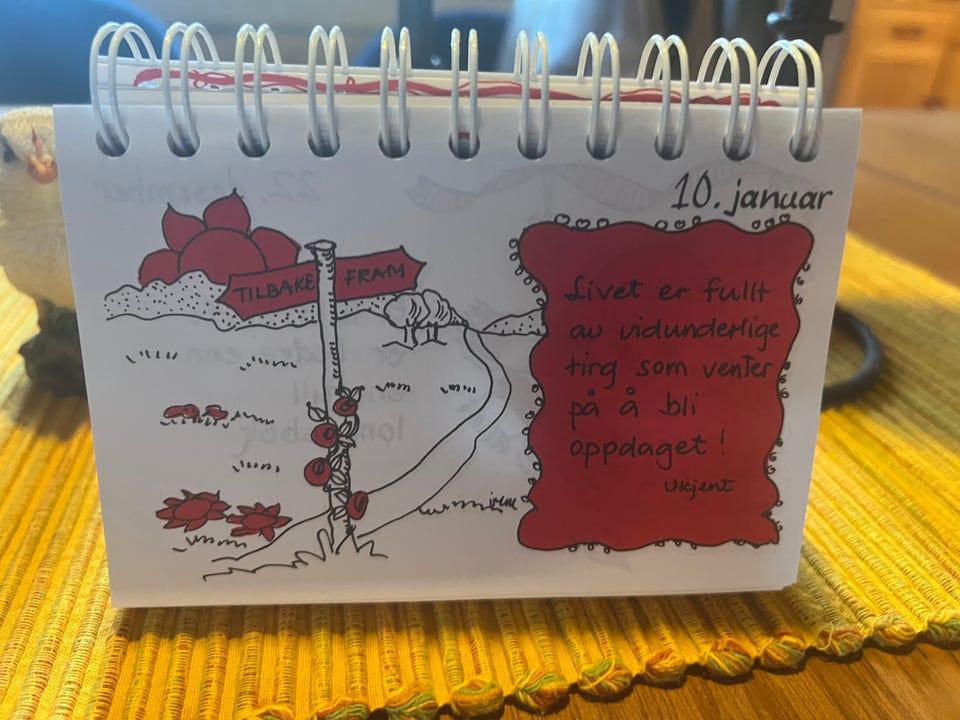 10. januar
TILBAKE FRAM
Livet er fullt
av vidunderlige
ting som venter
på å bli
oppdaget!
Ukjent
22. desember